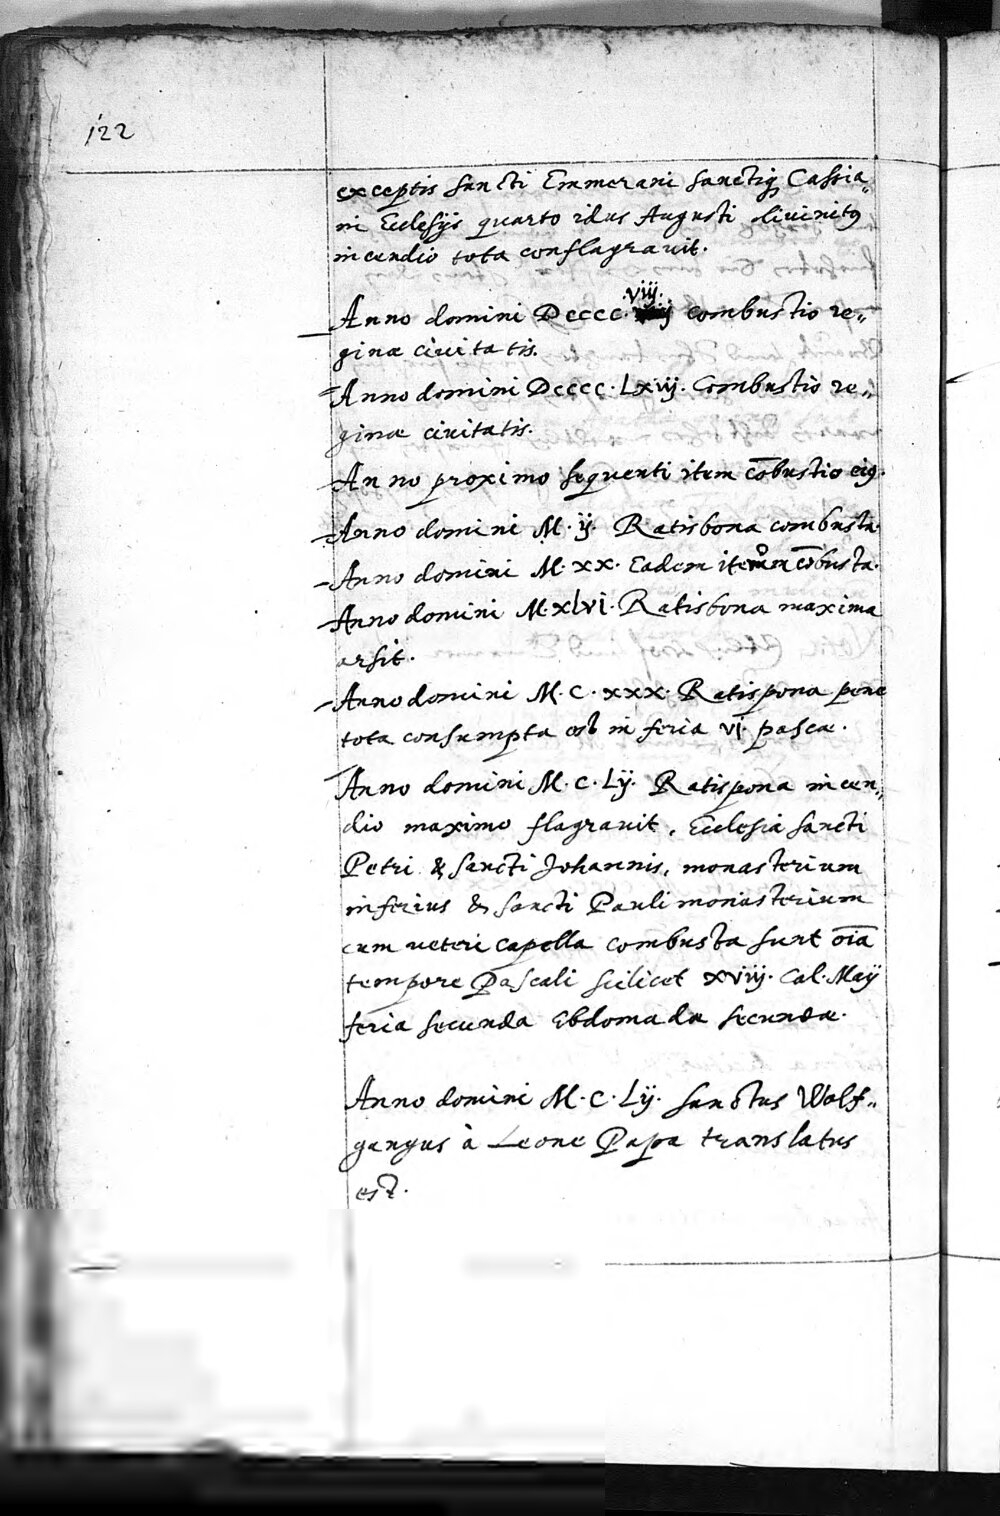 122
exceptis Sancti Emmerani Sanctiq, Cassia„
ni Ecclesijs quarto idus Augusti divinitq
incendio tota conflagravit.
Anno domini Dcccc. viij. combustio re„
ginæ civitatis.
Anno domini Dcccc. Lxvij. Combustio re„
ginæ civitatis.
Anno proximo sequenti item cōbustio eiq.
Anno domini M. ij Ratisbona combusta.
Anno domini M. xx. Eadem item cōbusta.
Anno domini M. xlvi. Ratisbona maxima
arsit.
Anno domini M. C. xxx. Ratispona pene
tota consumpta est in feria vi. pascæ.
Anno domini M. C. Lij. Ratispona incen„
dio maximo flagravit, Ecclesia Sancti
Petri & Sancti Johannis, monasterium
inferius & Sancti Pauli monasterium
cum veteri capella combusta sunt oīa
tempore Pascali scilicet xviij. Cal. Maij
feria secunda Ebdomadæ secundæ.
Anno domini M. C. Lij. Sanctus Wolf„
gangus à Leone Papa translatus
est.